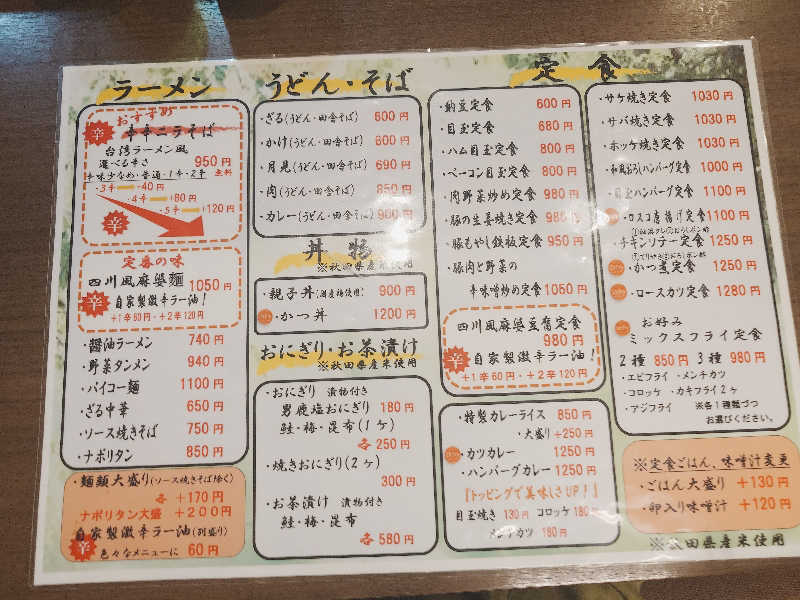 ラーメン
おすすめ
辛辛ニラそば
台湾ラーメン風
選べる辛さ 950円
辛味少なめ・普通・1辛・2辛 無料
・3辛 40円
・4辛 +80円
・5辛 +120円
定番の味
四川風麻婆麺 1050円
自家製激辛ラー油!
+1辛60円・+2辛120円
・醤油ラーメン 740円
・野菜タンメン 940円
・パイコー麺 1100円
・ざる中華 650円
・ソース焼きそば 750円
・ナポリタン 850円
・麺類大盛り(ソース焼きそば除く)
各 +170円
ナポリタン大盛 +200円
自家製激辛ラー油(別盛り)
色々なメニューに 60円
うどん・そば
・ざる(うどん・田舎そば) 600円
・かけ(うどん・田舎そば) 600円
・月見(うどん・田舎そば) 690円
・肉(うどん・田舎そば) 850円
・カレー(うどん・田舎そば) 900円
丼物
※秋田県産米使用
・親子丼 900円
・かつ丼 1200円
おにぎり・お茶漬け
※秋田県産米使用
・おにぎり 漬物付き
男鹿塩おにぎり 180円
鮭・梅・昆布(1ヶ)
各250円
・焼きおにぎり(2ヶ)
300円
・お茶漬け 漬物付き
鮭・梅・昆布
各580円
定食
・納豆定食 600円
・目玉定食 680円
・ハム目玉定食 800円
・ベーコン目玉定食 800円
・肉野菜炒め定食 980円
・豚の生姜焼き定食 980円
・豚もやし鉄板定食 950円
・豚肉と野菜の
辛味噌炒め定食 1050円
四川風麻婆豆腐定食
980円
自家製激辛ラー油!
+1辛60円・+2辛120円
・特製カレーライス 850円
・大盛り+250円
・カツカレー 1250円
・ハンバーグカレー 1250円
『トッピングで美味しさUP!』
目玉焼き 130円 コロッケ 180円
メンチカツ 180円
・サケ焼き定食 1030円
・サバ焼き定食 1030円
・ホッケ焼き定食 1030円
・和風おろしハンバーグ定食 1000円
・目玉ハンバーグ定食 1100円
・ロース唐揚げ定食 1100円
チキンソテー定食 1250円
・かつ煮定食 1250円
・ロースカツ定食 1280円
・お好み
ミックスフライ定食
2種 850円 3種 980円
・エビフライ ・メンチカツ
・コロッケ ・カキフライ2ヶ
・アジフライ ※各1種類づつ
お選びください。
※定食ごはん、味噌汁変更
・ごはん大盛り +130円
・卵入り味噌汁 +120円
※秋田県産米使用